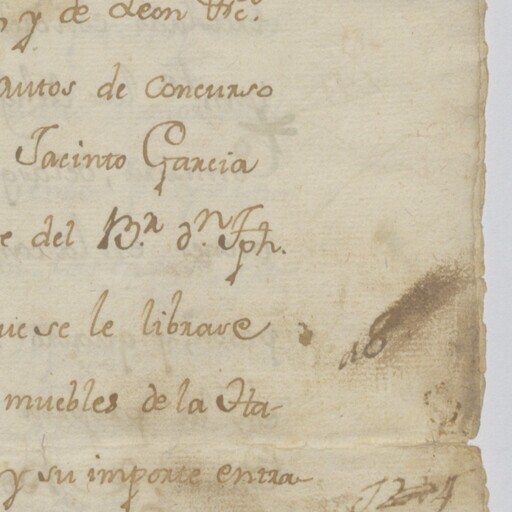 y de Leon &c.
autos de concurso
Jacinto Garcia
del B.r d.n Jph.
se le librase
muebles de la Ha-
y su importe entra